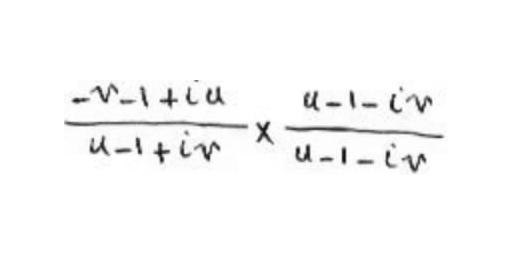 \frac{-v-1+iu}{u-1+iv} \times \frac{u-1-iv}{u-1-iv}